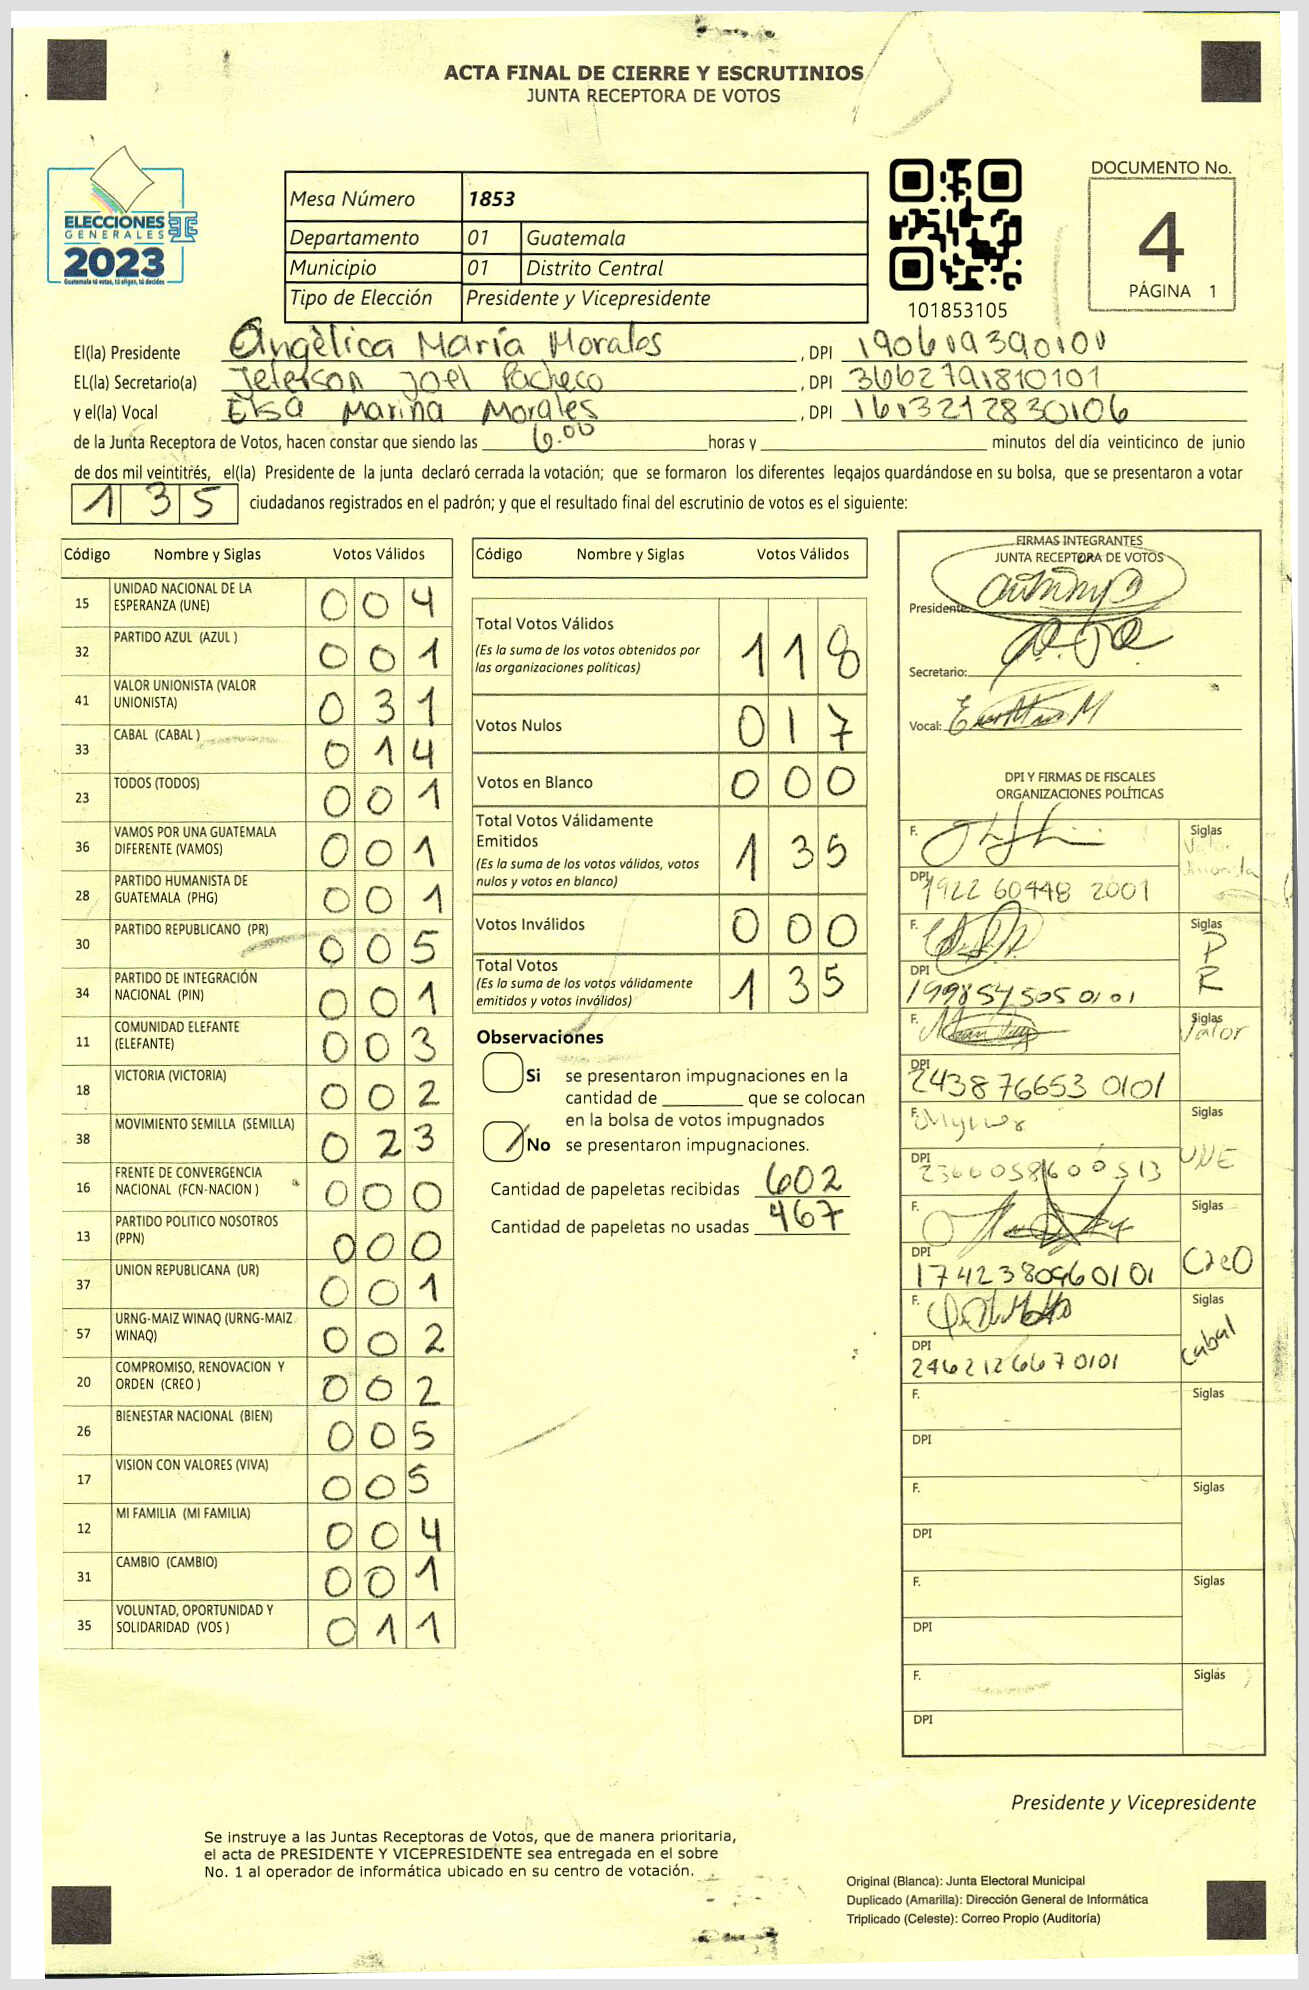 ACTA FINAL DE CIERRE Y ESCRUTINIOS
JUNTA RECEPTORA DE VOTOS
ELECCIONES
GENERALES
2023
Guatemala tú votas, tú eliges, tú decides
Mesa Número 1853
Departamento 01 Guatemala
Municipio 01 Distrito Central
Tipo de Elección Presidente y Vicepresidente
101853105
DOCUMENTO No.
4
PÁGINA 1
El(la) Presidente Angèlica María Morales, DPI
EL(la) Secretario(a) Jeferson Joel Pacheco, DPI 3662791810101
y el(la) Vocal Elsa Marina Morales, DPI 1613212830106
de la Junta Receptora de Votos, hacen constar que siendo las 6.00 horas y ______ minutos del día veinticinco de junio
de dos mil veintitrés, el(la) Presidente de la junta declaró cerrada la votación; que se formaron los diferentes legajos quardándose en su bolsa, que se presentaron a votar
135 ciudadanos registrados en el padrón; y que el resultado final del escrutinio de votos es el siguiente:
Código Nombre y Siglas Votos Válidos
15 UNIDAD NACIONAL DE LA ESPERANZA (UNE) 004
32 PARTIDO AZUL (AZUL ) 001
41 VALOR UNIONISTA (VALOR UNIONISTA) 031
33 CABAL (CABAL ) 014
23 TODOS (TODOS) 001
36 VAMOS POR UNA GUATEMALA DIFERENTE (VAMOS) 001
28 PARTIDO HUMANISTA DE GUATEMALA (PHG) 001
30 PARTIDO REPUBLICANO (PR) 005
34 PARTIDO DE INTEGRACIÓN NACIONAL (PIN) 001
11 COMUNIDAD ELEFANTE (ELEFANTE) 003
18 VICTORIA (VICTORIA) 002
38 MOVIMIENTO SEMILLA (SEMILLA) 023
16 FRENTE DE CONVERGENCIA NACIONAL (FCN-NACION ) 000
13 PARTIDO POLITICO NOSOTROS (PPN) 000
37 UNION REPUBLICANA (UR) 001
57 URNG-MAIZ WINAQ (URNG-MAIZ WINAQ) 002
20 COMPROMISO, RENOVACION Y ORDEN (CREO ) 002
26 BIENESTAR NACIONAL (BIEN) 005
17 VISION CON VALORES (VIVA) 005
12 MI FAMILIA (MI FAMILIA) 004
31 CAMBIO (CAMBIO) 001
35 VOLUNTAD, OPORTUNIDAD Y SOLIDARIDAD (VOS ) 011
Código Nombre y Siglas Votos Válidos
Total Votos Válidos 118
(Es la suma de los votos obtenidos por
las organizaciones políticas)
Votos Nulos 017
Votos en Blanco 000
Total Votos Válidamente
Emitidos 135
(Es la suma de los votos válidos, votos
nulos y votos en blanco)
Votos Inválidos 000
Total Votos 135
(Es la suma de los votos válidamente
emitidos y votos inválidos)
Observaciones
Si se presentaron impugnaciones en la
cantidad de ______ que se colocan
en la bolsa de votos impugnados
No se presentaron impugnaciones.
Cantidad de papeletas recibidas 602
Cantidad de papeletas no usadas 467
FIRMAS INTEGRANTES
JUNTA RECEPTORA DE VOTOS
Presidente:
Secretario:
Vocal:
DPI Y FIRMAS DE FISCALES
ORGANIZACIONES POLÍTICAS
F. Siglas
DPI 1922 60448 2001
F. Siglas P R
DPI 199854505 0101
F. Siglas Valor
DPI 243876653 0101
F. Siglas UNE
DPI
F. Siglas Creo
DPI 1742380960101
F. Siglas Cabal
DPI 2462126670101
F. Siglas
DPI
F. Siglas
DPI
F. Siglas
DPI
F. Siglas
DPI
Presidente y Vicepresidente
Se instruye a las Juntas Receptoras de Votos, que de manera prioritaria,
el acta de PRESIDENTE Y VICEPRESIDENTE sea entregada en el sobre
No. 1 al operador de informática ubicado en su centro de votación.
Original (Blanca): Junta Electoral Municipal
Duplicado (Amarilla): Dirección General de Informática
Triplicado (Celeste): Correo Propio (Auditoría)